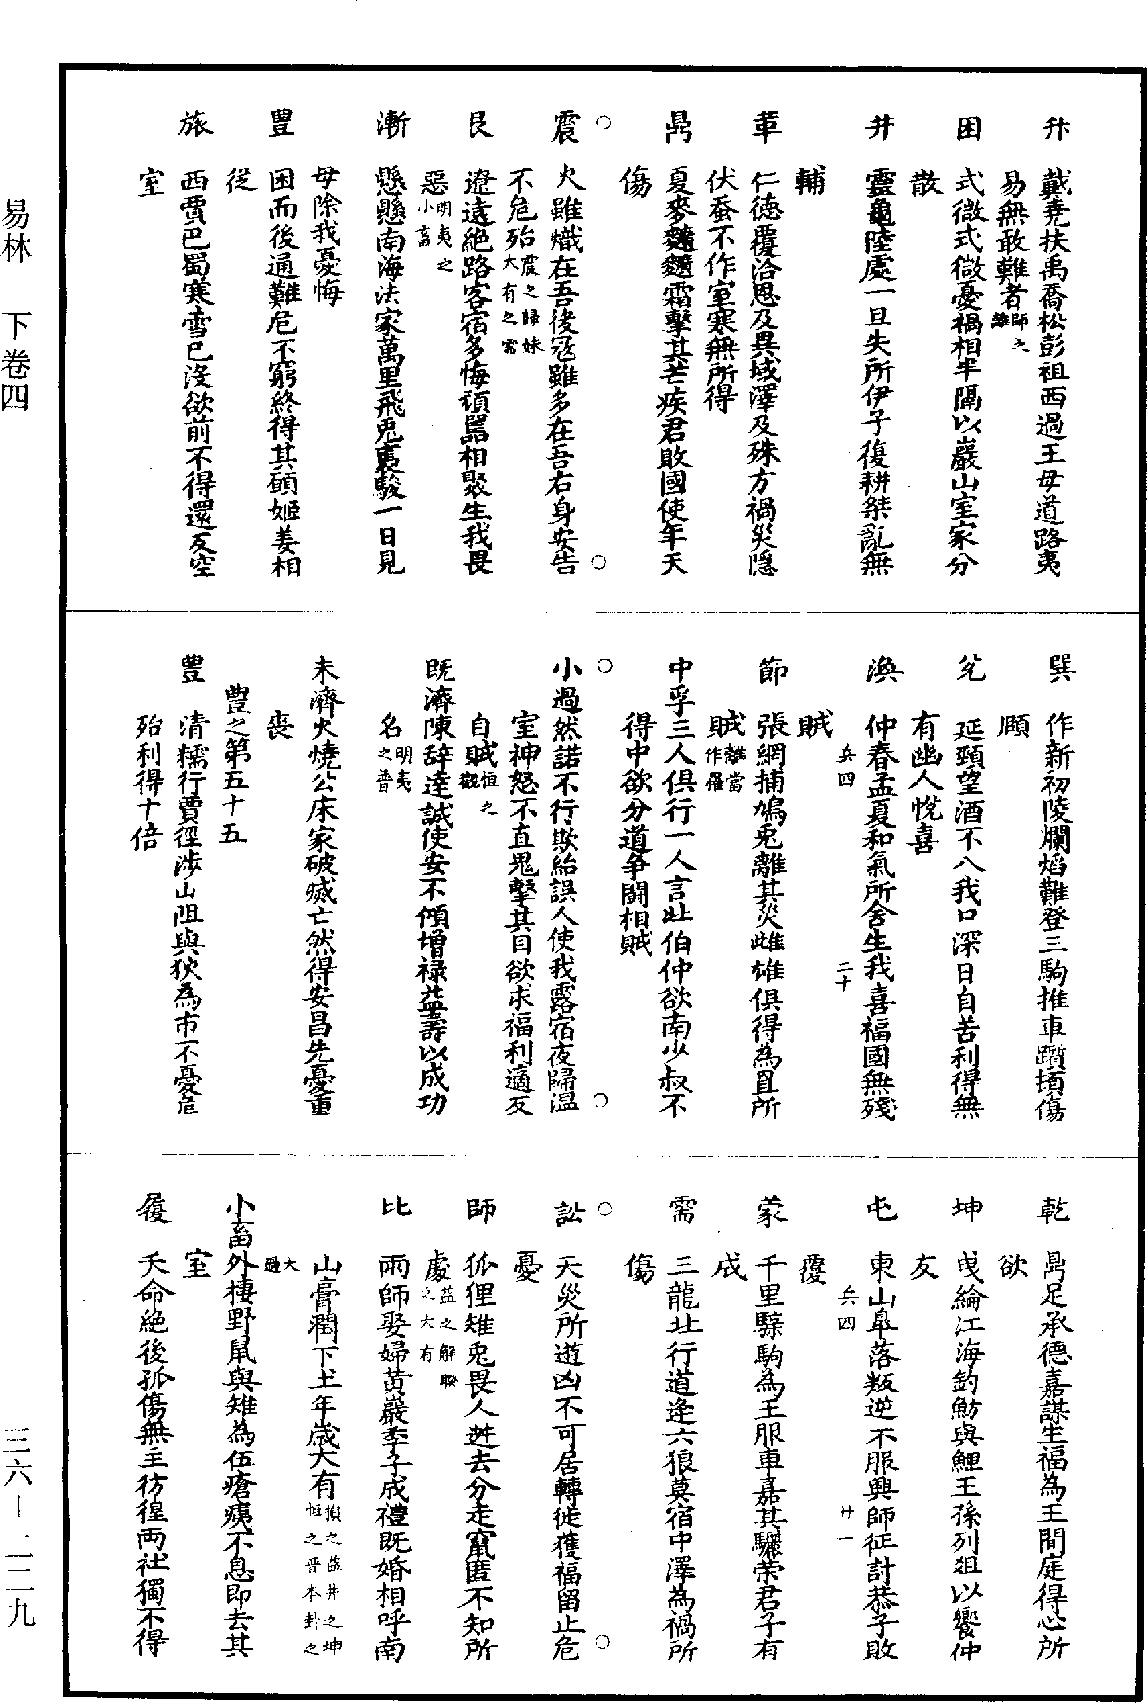 升　戴堯扶禹喬松彭祖西過王母道路夷
易無敢難者師之離
困　式微式微憂禍相半隔以巖山室家分
散
井　靈龜陸處一旦失所伊子復耕桀亂無
輔
革　仁德覆洽恩及異域澤及殊方禍災隱
伏蚕不作室寒無所得
鼎　夏麥䴬麴霜擊其芒疾君敗國使年夭
傷
震　火雖熾在吾後冦雖多在吾右身安吉
不危殆震之歸妹大有之需
艮　遼遠絕路客宿多悔頑嚚相聚生我畏
惡明夷之小畜
漸　懸懸南海法家萬里飛兎裊駿一日見
母除我憂悔
豐　困而後通難危不窮終得其願姬姜相
從
旅　西賈巴蜀寒雪已沒欲前不得還反空
室
巽　作新初陵爛熖難登三駒推車躓頓傷
頤
兌　延頸望酒不入我口深日自苦利得無
有幽人悅喜
渙　仲春孟夏和氣所舍生我喜福國無殘
賊
兵四　二十
節　張網捕鳩兎離其災雌雄俱得為罝所
賊離當作罹
中孚三人俱行一人言北伯仲欲南少叔不
得中欲分道爭鬪相賊
小過然諾不行欺紿誤人使我露宿夜歸溫
室神怒不直鬼擊其目欲求福利適反
自賊恒之觀
既濟陳辞達誠使安不傾增祿益壽以成功
名明夷之晉
未濟火燒公床家破滅亡然得安昌先憂重
喪
豐之第五十五
豐　清糯行賈徑涉山阻與狄為市不憂危
殆利得十倍
乾　鼎足承德嘉謀生福為王開庭得心所
欲
坤　曳綸江海釣魴與鯉王孫列俎以饗仲
友
屯　東山皐落叛逆不服興師征討恭子敗
覆
兵四　廿一
蒙　千里騄駒為王服車嘉其驪榮君子有
成
需　三龍北行道逢六狼莫宿中澤為禍所
傷
訟　天災所遊凶不可居轉徙獲福留止危
憂
師　狐狸雉兎畏人逃去分走竄匿不知所
處益之解睽之大有
比　雨師娶婦黃巖季子成禮既婚相呼南
山膏潤下土年歲大有損之益井之坤恒之晉本卦之大過
小畜外棲野鼠與雉為伍瘡痍不息即去其
室
履　夭命絕後孤傷無主彷徨兩社獨不得
易林　下卷四
三六—二二九